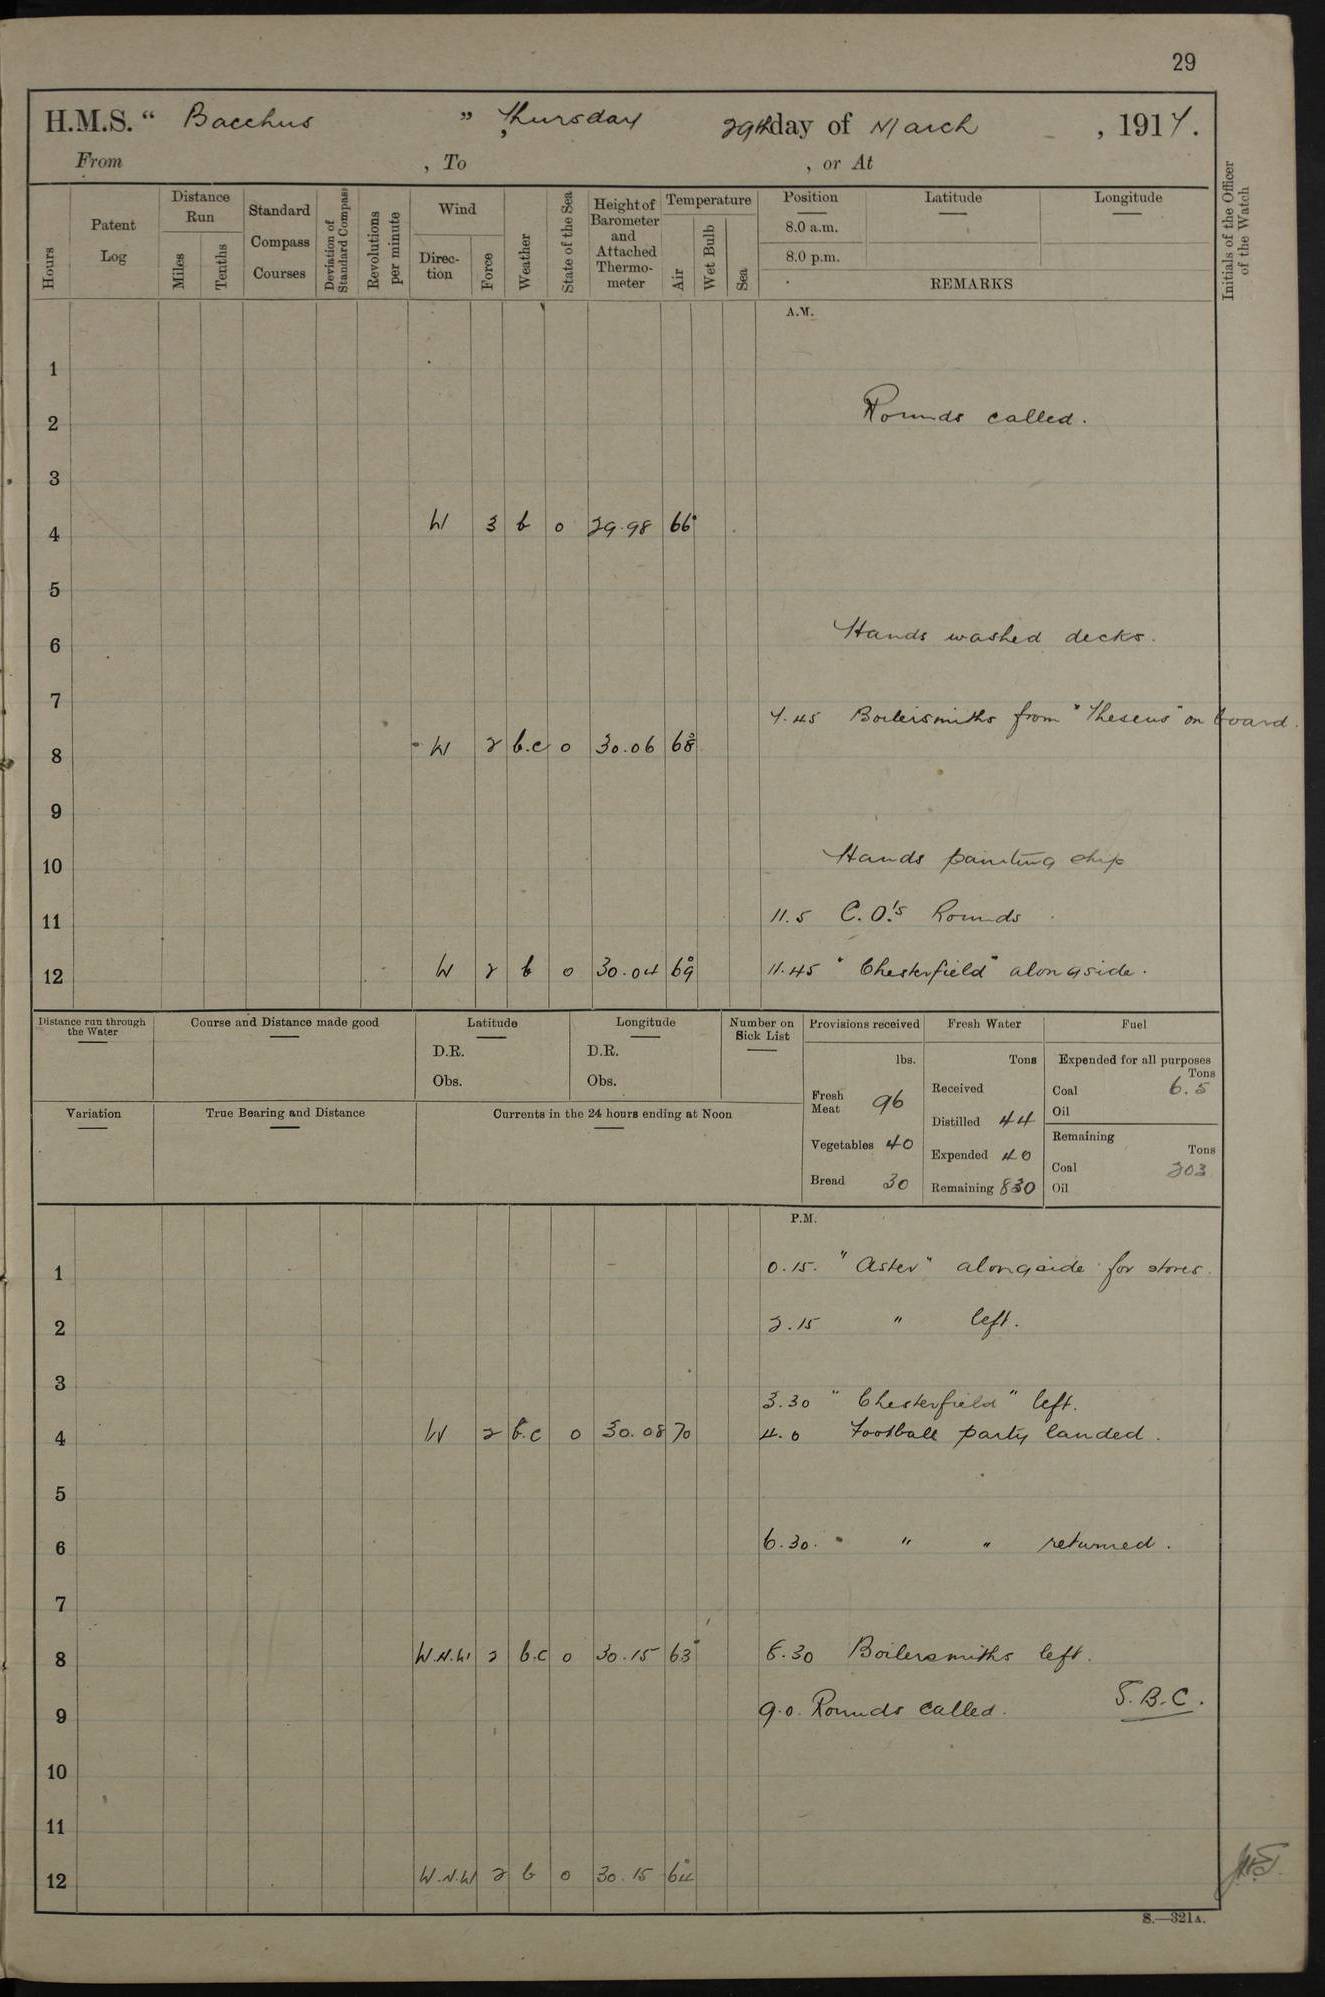 29
H.M.S. “ Bacchus ” Thursday 29th day of March , 1917.
From , To , or At
Hours
Patent Log
Distance Run
Miles
Tenths
Standard Compass Courses
Deviation of Standard Compass
Revolutions per minute
Wind
Direction
Force
Weather
State of the Sea
Height of Barometer and Attached Thermometer
Temperature
Air
Wet Bulb
Sea
Position Latitude Longitude
8.0 a.m.
8.0 p.m.
REMARKS
Initials of the Officer of the Watch
A.M.
1
2 Rounds called.
3
4 W 3 b o 29.98 66°
5
6 Hands washed decks.
7 7.45 Boilersmiths from "Theseus" on board.
8 W 2 b.c o 30.06 68
9
10 Hands painting ship
11 11.5 C.O's Rounds
12 W 2 b o 30.04 69° 11.45 "Chesterfield" alongside.
Distance run through the Water
Course and Distance made good
Latitude
D.R.
Obs.
Longitude
D.R.
Obs.
Number on Sick List
Provisions received
lbs.
Fresh Meat 96
Vegetables 40
Bread 30
Fresh Water
Tons
Received
Distilled 44
Expended 40
Remaining 830
Fuel
Expended for all purposes
Tons
Coal 6.5
Oil
Remaining
Tons
Coal 203
Oil
Variation
True Bearing and Distance
Currents in the 24 hours ending at Noon
P.M.
1 0.15. "Aster" alongside for stores.
2 2.15 " left.
3 3.30 "Chesterfield" left.
4 W 2 b.c o 30.08 70 4.0 Football party landed.
5
6 6.30. " " " returned.
7
8 W.N.W 2 b.c o 30.15 63° 8.30 Boilersmiths left.
9 9.0. Rounds called. S.B.C.
10
11
12 W.N.W 2 b o 30.15 64°
S.—321A.